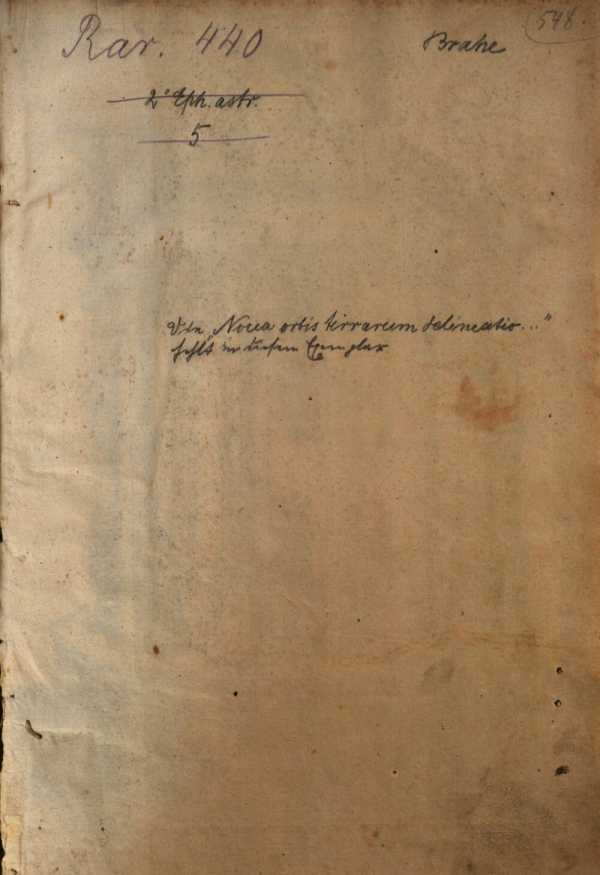 548.
Rar. 440
Brahe
2° Eph. astr.
5
Die „Nova orbis terrarum delineatio..."
fehlt in diesem Exemplar